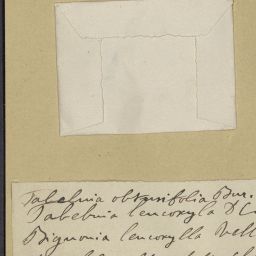 Tabebuia obtusifolia Bur.
Tabebuia leucoxyla DC
Bignonia leucoxylla Vell